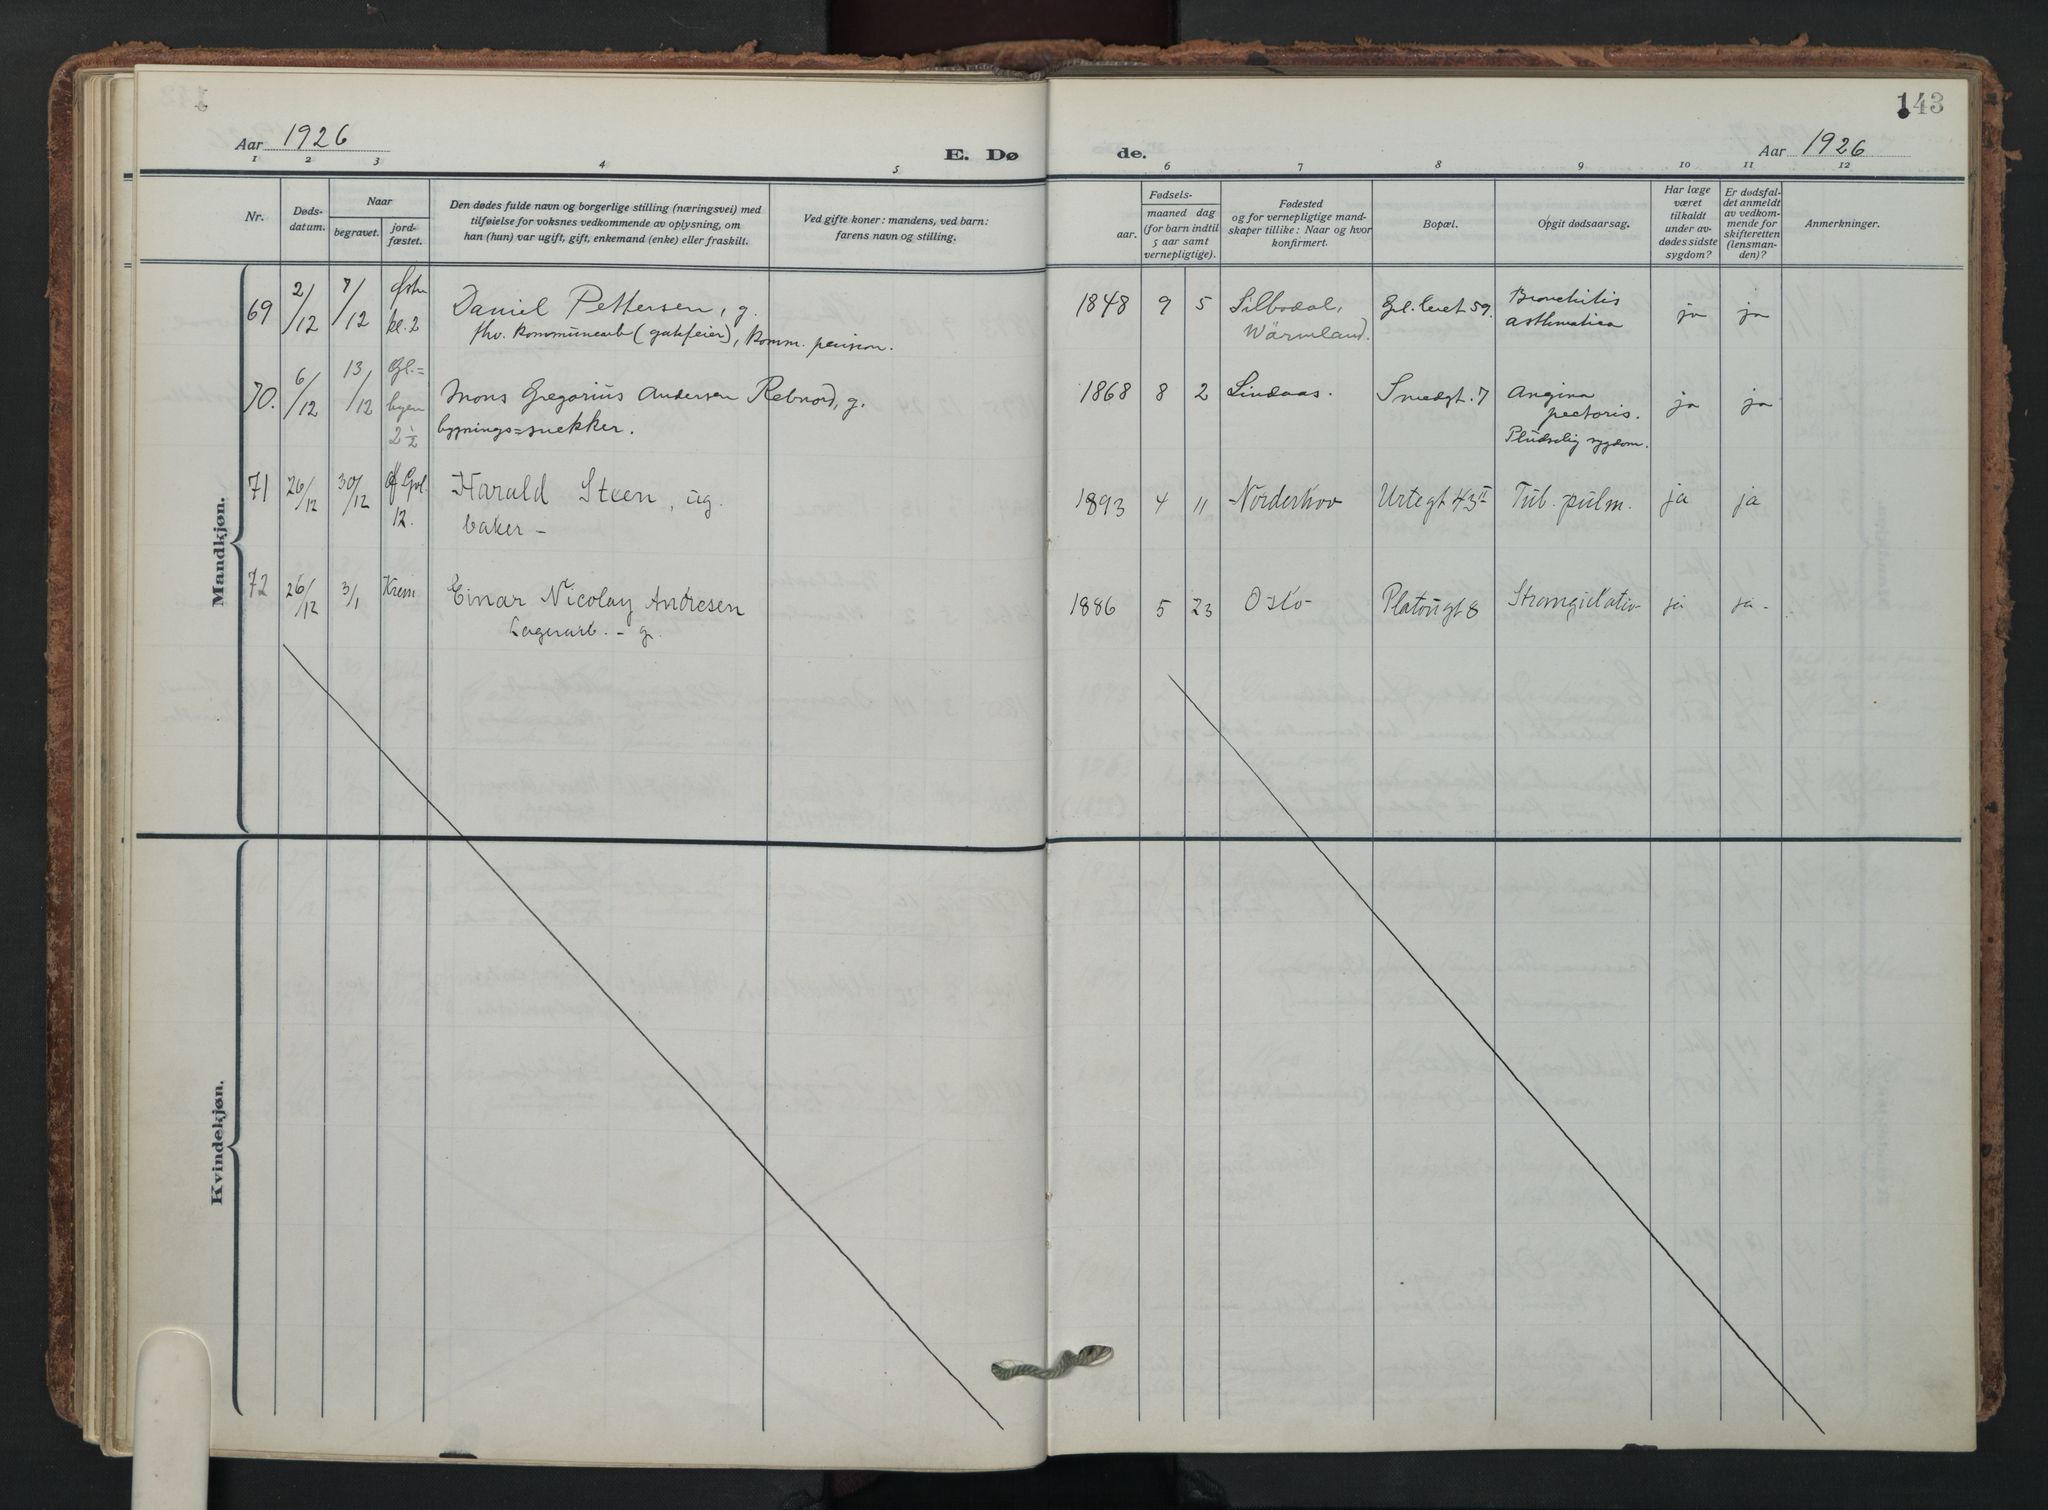 143
Aar 1926
E. Dø
de.
Aar 1926
1 2 3 4 5 6 7 8 9 10 11 12
Nr.
Døds-
datum.
Naar
begravet.
jord-
fæstet.
Den dødes fulde navn og borgerlige stilling (næringsvei) med
tilføielse for voksnes vedkommende av oplysning, om
han (hun) var ugift, gift, enkemand (enke) eller fraskilt.
Ved gifte koner: mandens, ved barn:
farens navn og stilling.
Fødsels-
aar.
maaned dag
(for barn indtil
5 aar samt
vernepligtige).
Fødested
og for vernepligtige mand-
skaper tillike: Naar og hvor
konfirmert.
Bopæl.
Opgit dødsaarsag.
Har læge
været
tilkaldt
under av-
dødes sidste
sygdom?
Er dødsfal-
det anmeldt
av vedkom-
mende for
skifteretten
(lensman-
den)?
Anmerkninger.
Mandkjøn.
69 2/12 7/12 Østre kl. 2 Daniel Pettersen, g. 1848 9 5 Silbodal, Grl. leret 59. Bronchitis ja ja
fhv. kommunearb (gatefeier), komm. pension. Wärmland. asthmatica
70. 6/12 13/12 Gl.= byen 2½ Mons Gregorius Andersen Rebnord, g. 1868 8 2 Lindaas. Smedgt. 7 Angina ja ja
bygnings=snekker. pectoris.
Pludselig sygdom.
71 26/12 30/12 12. Harald Steen, ug. 1893 4 11 Norderhov Urtegt 43 II Tub. pulm. ja ja
baker –
72 26/12 3/1 Krem Einar Nicolay Andresen 1886 5 23 Oslo Platougt 8 ja ja -
Lagerarb. – g.
Kvindekjøn.